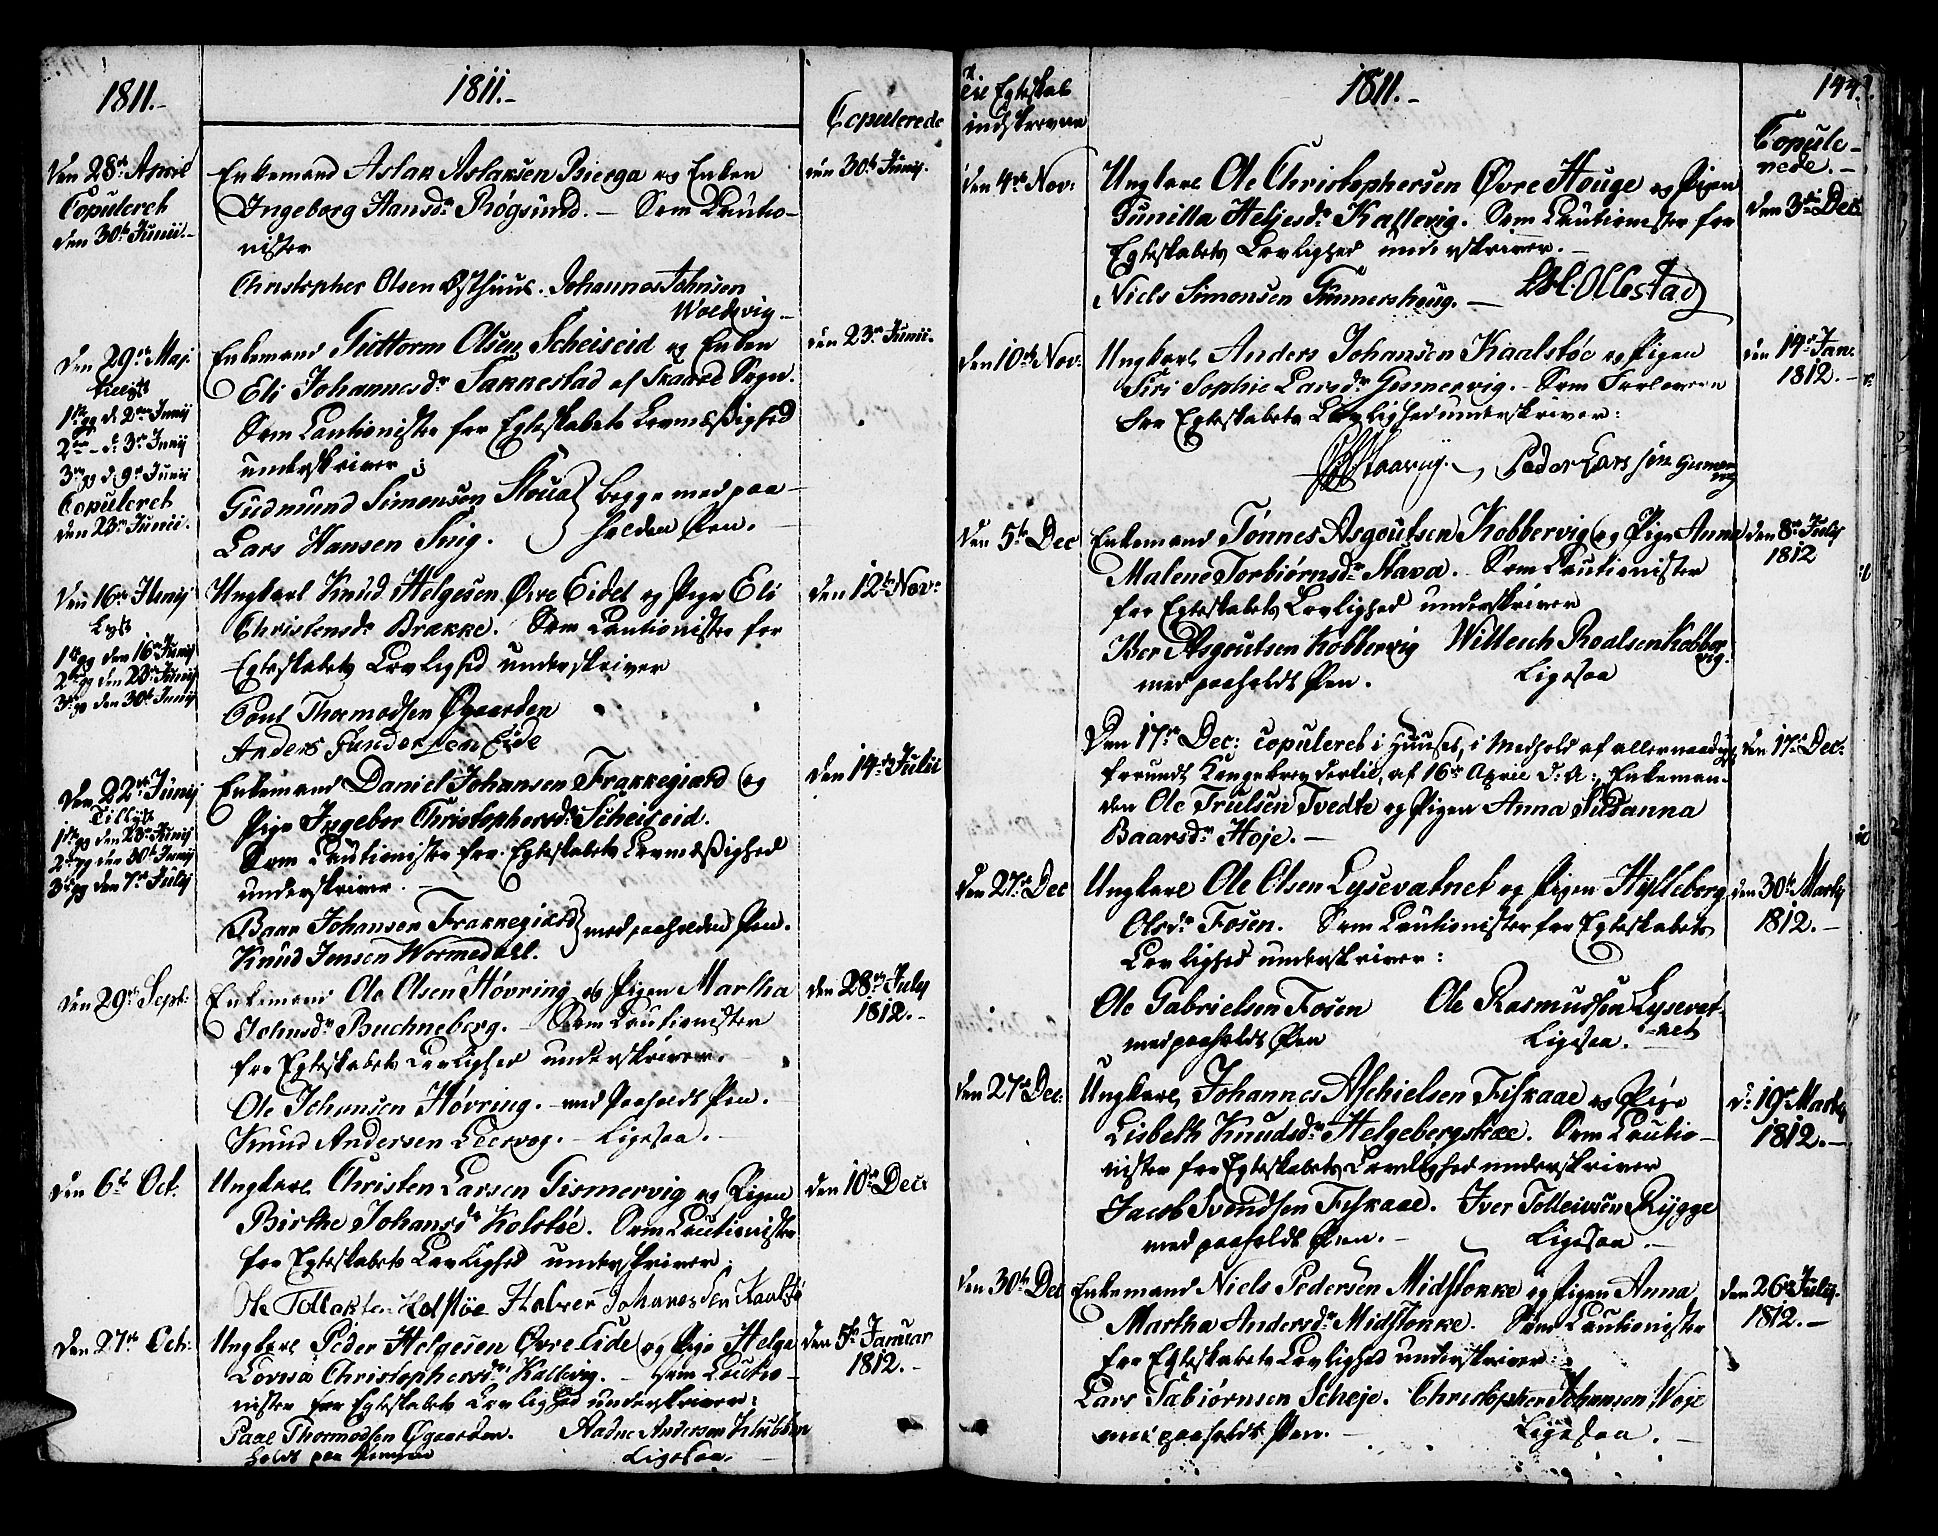 1811.-
1811.-
Copulerede
Den 28de April
Copuleret
den 30te Junii.-
Enkemand Aslak Aslaksen Bierga og Enken
Ingeborg Hansdr Røgsund. - Som Cautio-
nister
Christopher Olsen Østhuus. Johannes Johnsen
Woldsvig.-
den 30te Junij.
Den 29de Maj.
1ste gg d. 2den Junij
2den - d. 3de Junij
3die gg d. 9de Junii
Copuleret
den 23de Junii.
Enkemand Guttorm Olsen Scheiseid og Enken
Eli Johannesdr Sakkestad af Skaare Sogn.
Som Cautionister for Egteskabets Lovmæßighed
underskriver:
Gudmund Simonsen Stoua
Lars Hansen Sing.
begge med paa-
holden Pen.
den 23de Junii.
Den 16de Junij
Lyst
1ste gg den 16de Junij
2den gg den 23de Junij
3die gg den 30te Junij
Ungkarl Knud Helgesen Øvre Eidet og Pige Eli
Christensdr Brække. Som Cautionister for
Egteskabets Lovlighed underskriver
Poul Thormodsen Øgaarden
Anders Gundersen Eide
den 12te Novr
Den 22de Junij
Tillyst
1ste gg den 23de Junij
2den gg den 30te Junij
3die gg den 7de Julij
Enkemand Daniel Johansen Frakkegierd og
Pige Ingebor Christophersdr Scheiseid.
Som Cautionister for Egteskabets Lovmæßighed
underskriver. -
Baar Johansen Frakkegierd
Knud Jensen Wormedall.
med paaholden Pen.
den 14de Julii
den 29de Sept:
Enkemand Ole Olsen Høvring og Pigen Martha
Johnsdr Buchneberg. - Som Cautionister
for Egteskabets Lovlighed underskriver.
Ole Johansen Høvring. - med Paaholdt Pen.
Knud Andersen Leervog. - Ligesaa. -
den 28de July
1812.-
den 6te Oct.
Ungkarl Christen Larsen Gismervig og Pigen
Birthe Johansdr Kolstöe. Som Cautionister
for Egteskabets Lovlighed underskriver:
Ole Tollaksen Kolstöe Halver Johanesen Kaalstö
den 10de Dec:
Den 27de Oct:
Ungkarl Peder Helgesen Øvre Eide og Pige Helga
Lovisa Christophersdr Kallevig. - Som Cautio-
nister for Egteskabets Lovlighed underskriver:
Paal Thormodsen Øgaarden. Aadne Andersen Klubben
holdt paa Pennen Ligesaa.-
den 5te Januar
1812.-
Til Egteskab
indskrevne
1811.-
144.
Copule-
rede.-
den 4de Nov:
Ungkarl Ole Christophersen Øvre Houge og Pigen
Gunilla Heljesdr Kallevig. Som Cautionister for
Egteskabets Lovlighed underskriver.-
Niels Simonsen Gunnershoug.- Ollestad
den 3die Dec:
den 10de Nov:
Ungkarl Anders Johansen Kaalstöe og Pigen
Siri Sophie Larsdr Gismervig.- Som Forlovere
for Egteskabets Lovlighed underskriver:
Staarvig. Peder Larssen Gismer
vig
den 14de Jan:
1812.-
Den 5te Dec
Enkemand Tønnes Asgoutsen Kobbervig og Pige Anna
Malene Torbiørnsdr Stava. Som Cautionister
for Egteskabets Lovlighed underskriver
Iver Asgoutsen Kobbervig Willesch Roalsen Kobber
vig.
med paaholdt Pen. Ligesaa
den 8de July
1812
Den 17de Dec: copuleret i Huuset, i Medhold af allernaadigst
Kongebrev dertil, af 16de April d. A:, Enkeman-
den Ole Trulsen Tvedte og Pigen Anna Susanna
Baarsdr Hoje.-
den 17de Dec:
den 27de Dec
Ungkarl Ole Olsen Lysevatnet og Pigen Hylleborg
Olsdr Fosen. Som Cautionister for Egteskabets
Lovlighed underskriver:
Ole Gabrielsen Fosen Ole Rasmudsen Lysevat-
-net
med paaholdt Pen Ligesaa.
den 30te Martij
1812.-
den 27de Dec:
Ungkarl Johannes Aschielsen Fiskaae og Pige
Lisbeth Knudsdr Helgebergskee. Som Cautio-
nister for Egteskabets Lovlighed underskriver
Jacob Svendsen Fiskaae. Iver Tolleivsen Rygge
med paaholdt Pen.- Ligesaa.-
d. 19de Martij
1812.-
den 30te Dec
Enkemand Niels Pedersen Midstokke og Pigen Anna
Martha Andersdr Midstokke. Som Cautionister
for Egteskabets Lovlighed underskriver:
Lars Tabiørnsen Scheje. Christopher Johansen Woje
med paaholdt Pen.- Ligesaa.-
den 26de July.
1812.-